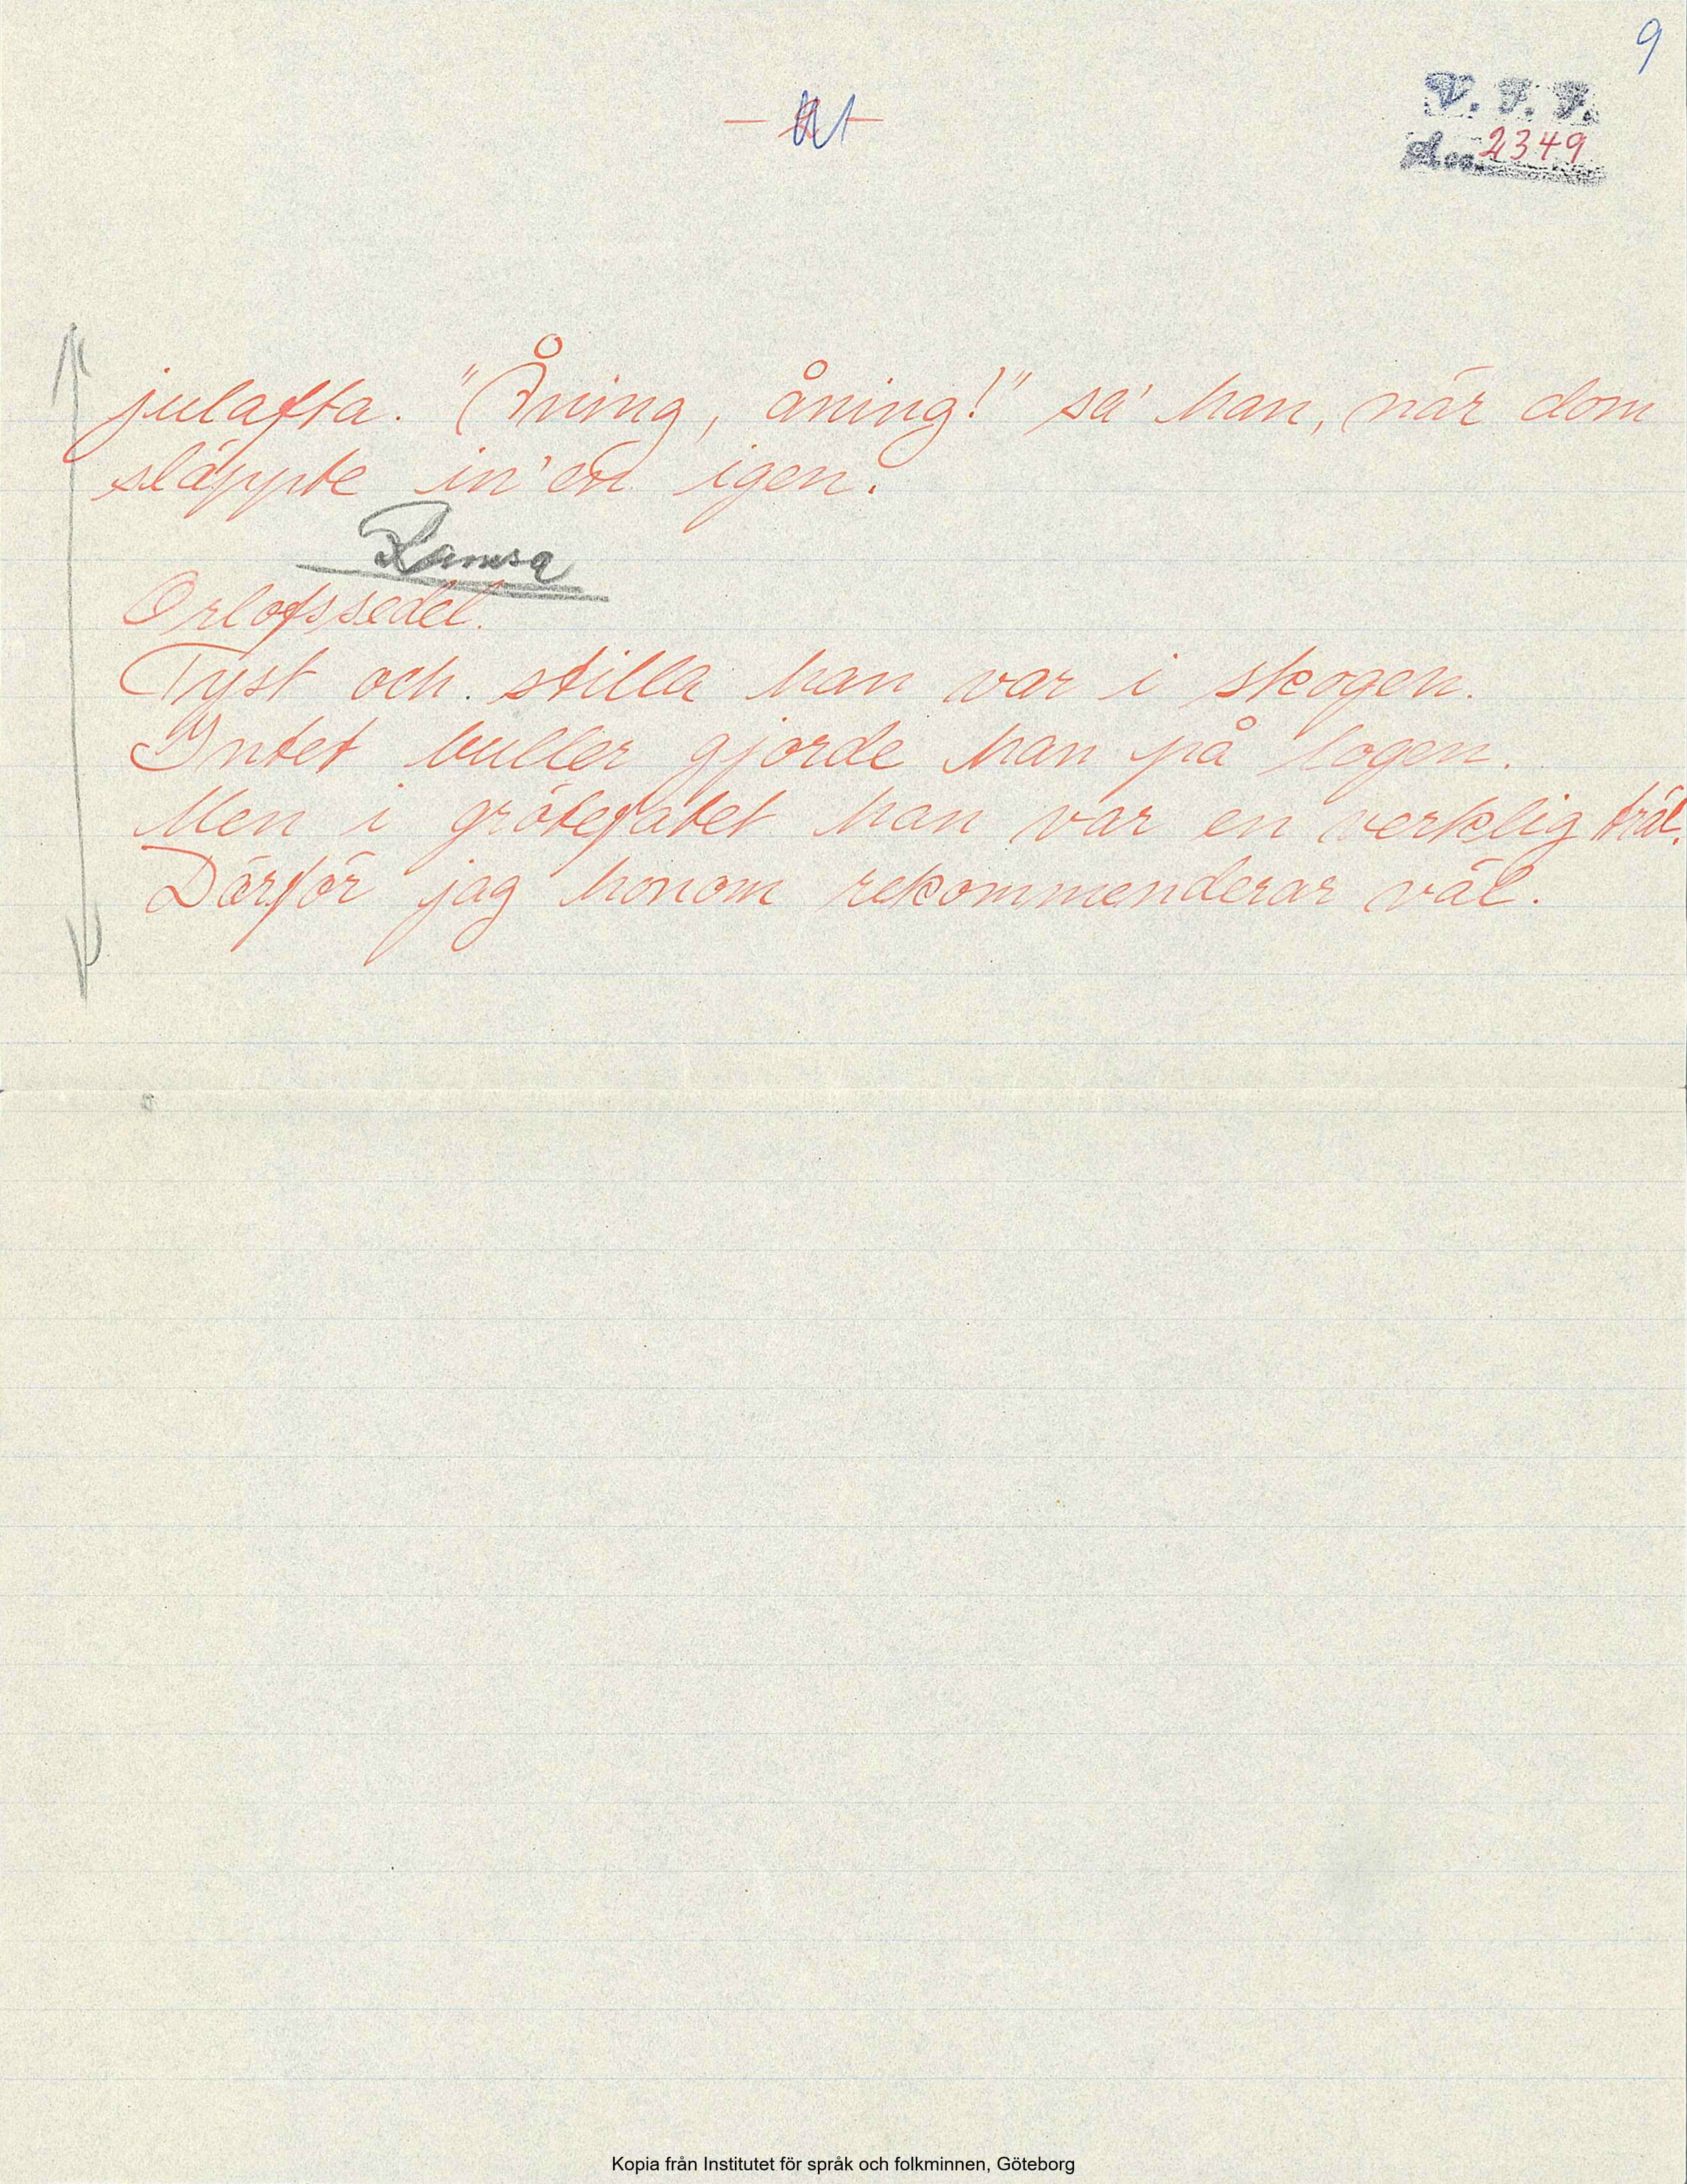 9
V. F. F.
Acc. 2349
julafta. "Åning, åning!" sa' han, når dom
släppte in'en igen.
Ramsa
Orlofssedel.
Tyst och stilla han var i skogen.
Intet buller gjorde han på logen.
Men i grötefatet han var en verklig träl.
Därför jag honom rekommenderar väl.
Kopia från Institutet för språk och folkminnen, Göteborg